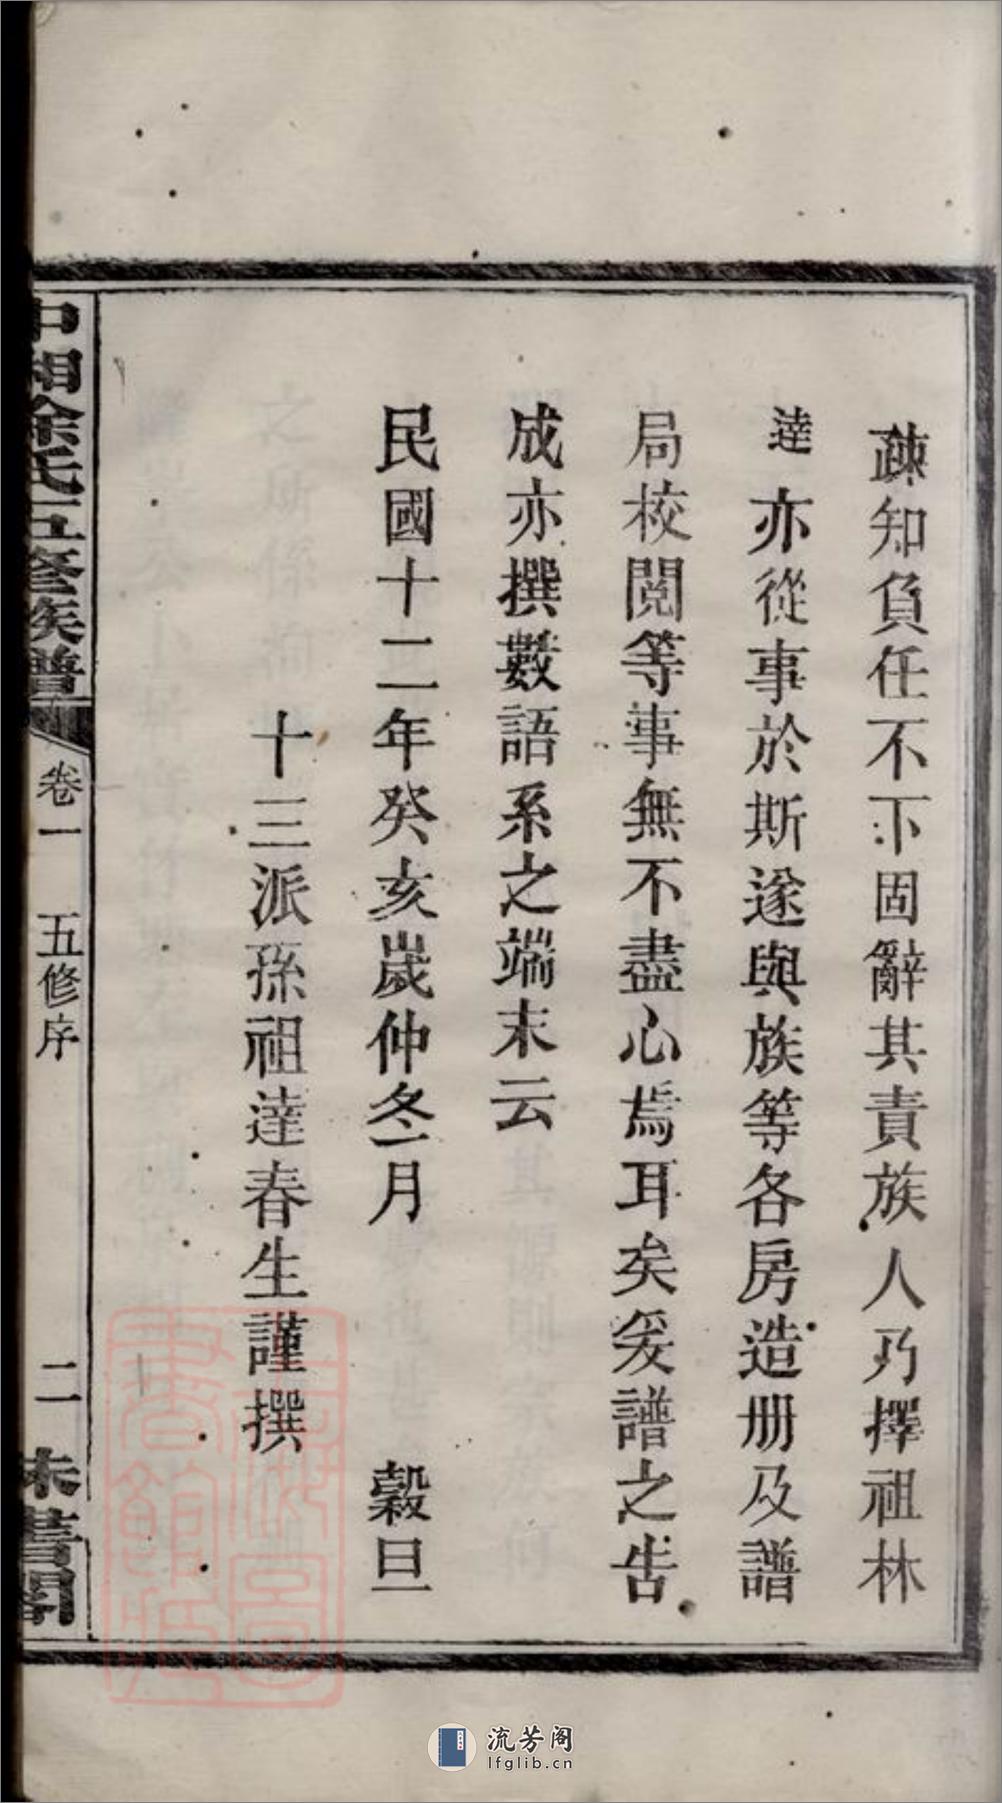 疎知負任不下固辭其責族人乃擇祖林
達亦從事於斯遂與族等各房造册及譜
局校閱等事無不盡心焉耳矣爰譜之告
成亦撰數語系之端末云
民國十二年癸亥歲仲冬月 穀旦
十三派孫祖達春生謹撰
中湘徐氏五修族譜 卷一 五修序 二 東書閣
流芳阁
lfglib.cn